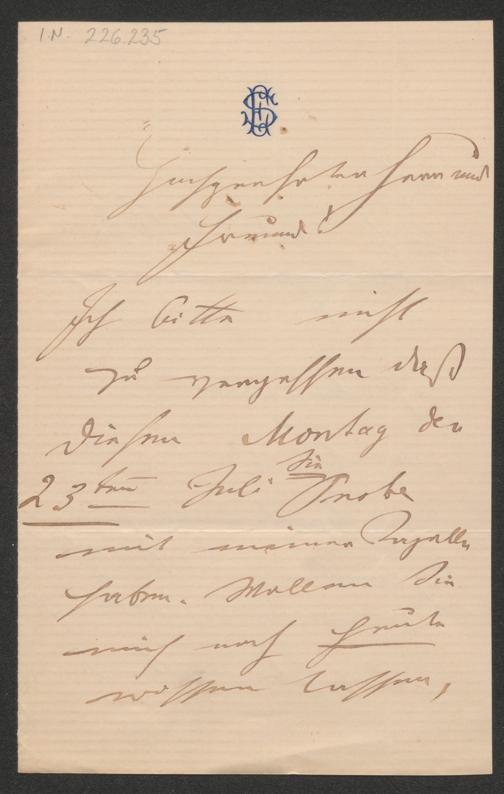 I.N. 226.235
Hochgeehrter Herr und
Freund!
Ich bitte nicht
zu vergessen daß
diesen Montag den
23ten Juli Sie Probe
mit meiner Kapelle
haben. Wollen Sie
mich noch heute
wissen lassen,